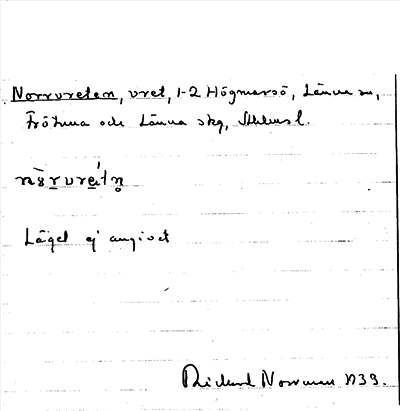 Norrvreten, vret, 1-2 Högmarsö, Länna sn,
Frötuna och Länna skg, Sthlms l.
nòrvréitn̥
Läget ej angivet
Rickard Norrman 1939.